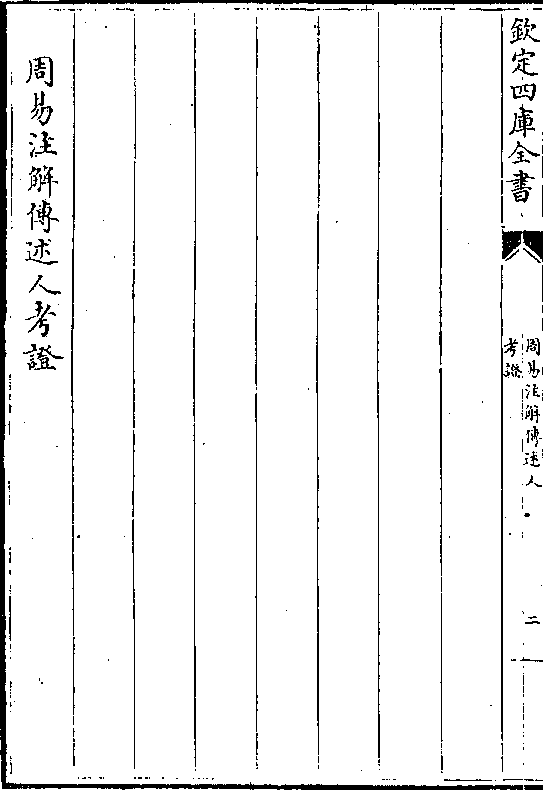 欽定四庫全書
周易注解傳述人
考證
二
周易注解傳述人考證